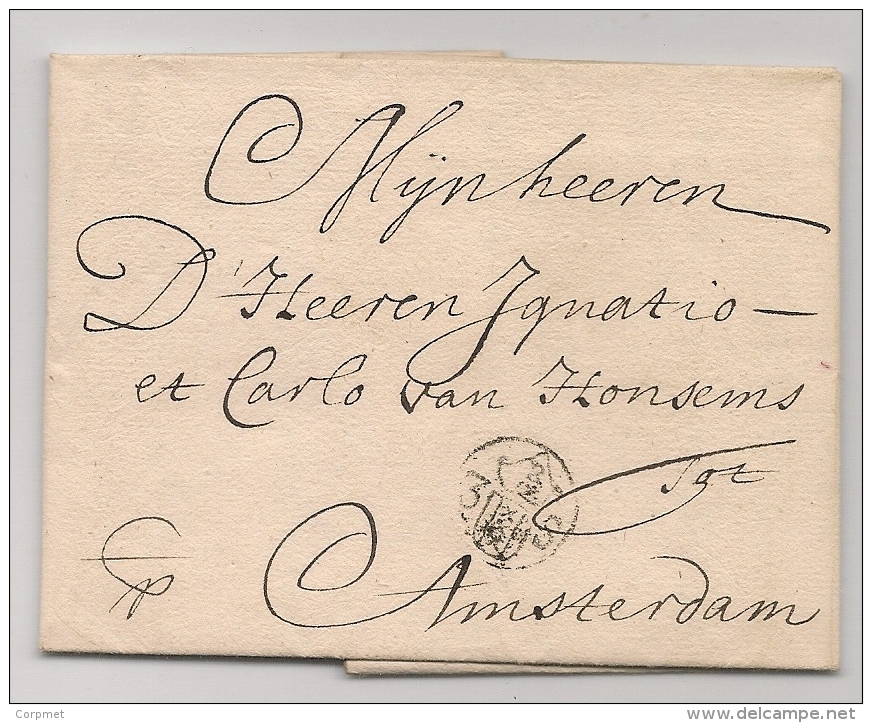 Mijnheeren
D'Heeren Ignatio —
et Carlo van Honsems
Tot
Amsterdam
3 S
Corpmet
www.delcampe.net